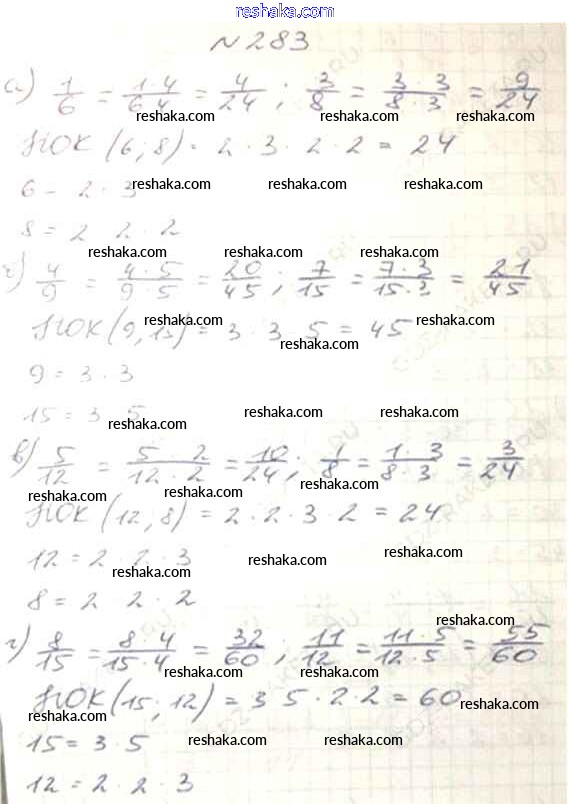 reshaka.com
№283
а) 1/6 = 1·4/6·4 = 4/24; 3/8 = 3·3/8·3 = 9/24
reshaka.com reshaka.com reshaka.com
НОК (6; 8) = 2·3·2·2 = 24
6 = 2·3
reshaka.com reshaka.com reshaka.com
8 = 2 2·2
reshaka.com reshaka.com reshaka.com
4/9 = 4·5/9·5 = 20/45; 7/15 = 7·3/15·3 = 21/45
reshaka.com reshaka.com
НОК (9, 15) = 3·3 5 = 45
reshaka.com
9 = 3·3
15 = 3 5
reshaka.com reshaka.com reshaka.com
в) 5/12 = 5·2/12·2 = 10/24; 1/8 = 1·3/8·3 = 3/24
reshaka.com reshaka.com reshaka.com
НОК (12, 8) = 2·2·3·2 = 24
12 = 2·2·3
reshaka.com reshaka.com reshaka.com
8 = 2 2·2
reshaka.com
г) 8/15 = 8·4/15·4 = 32/60; 11/12 = 11·5/12·5 = 55/60
reshaka.com reshaka.com
НОК (15; 12) = 3 5·2·2 = 60
reshaka.com reshaka.com
15 = 3·5
reshaka.com reshaka.com
12 = 2·2·3